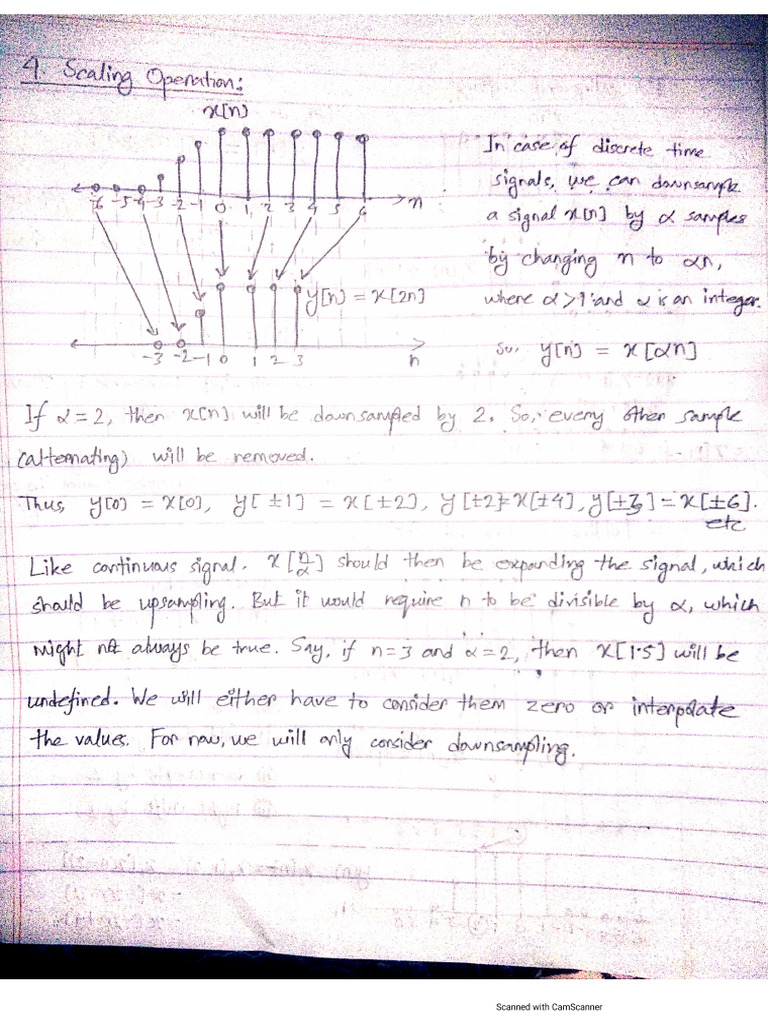 4. Scaling Operation:
x[n]
-6 -5 -4 -3 -2 -1 0 1 2 3 4 5 6 n
y[n] = x[2n]
-3 -2 -1 0 1 2 3 n
In case of discrete time
signals, we can downsample
a signal x[n] by α samples
by changing n to αn,
where α>1 and α is an integer.
So, y[n] = x[αn]
If α=2, then x[n] will be downsampled by 2. So, every other sample
(alternating) will be removed.
Thus, y[0] = x[0], y[±1] = x[±2], y[±2]=x[±4], y[±3] = x[±6].
etc
Like continuous signal. x[n/α] should then be expanding the signal, which
should be upsampling. But it would require n to be divisible by α, which
might not always be true. Say, if n=3 and α=2, then x[1.5] will be
undefined. We will either have to consider them zero or interpolate
the values. For now, we will only consider downsampling.
Scanned with CamScanner